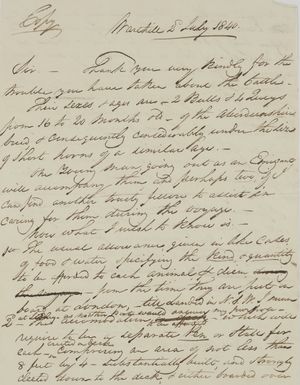 Copy
Warthill 2 July 1840.
Sir - Thank you very kindly for the
trouble you have taken about the Cattle
Their Sexes & ages are - 2 Bulls & 4 Queys
from 16 to 20 months old - of the Aberdeenshire
breed & Consequently considerably under the size
of Short horns of a similar age. -
One Young Man going out as an Emigrant
will accompany them and perhaps two if I
can find another trusty fellow to assist in
Caring for them during the voyage. -
Now what I wish to know is -
The usual allowance given in the Cases
of food & water specifying the Kind & quantity
to be afforded to each animal &
from the time they are put on
board at London, till landed in N.S.W. I mean
2 at as another port would answer my purpose -
The Accommodation - which will
require to be in separate Pen or Stall for
each - Comprising an area of not less than
8 feet by 4 - substantially built and strongly
cleeted down to the deck, either boarded over